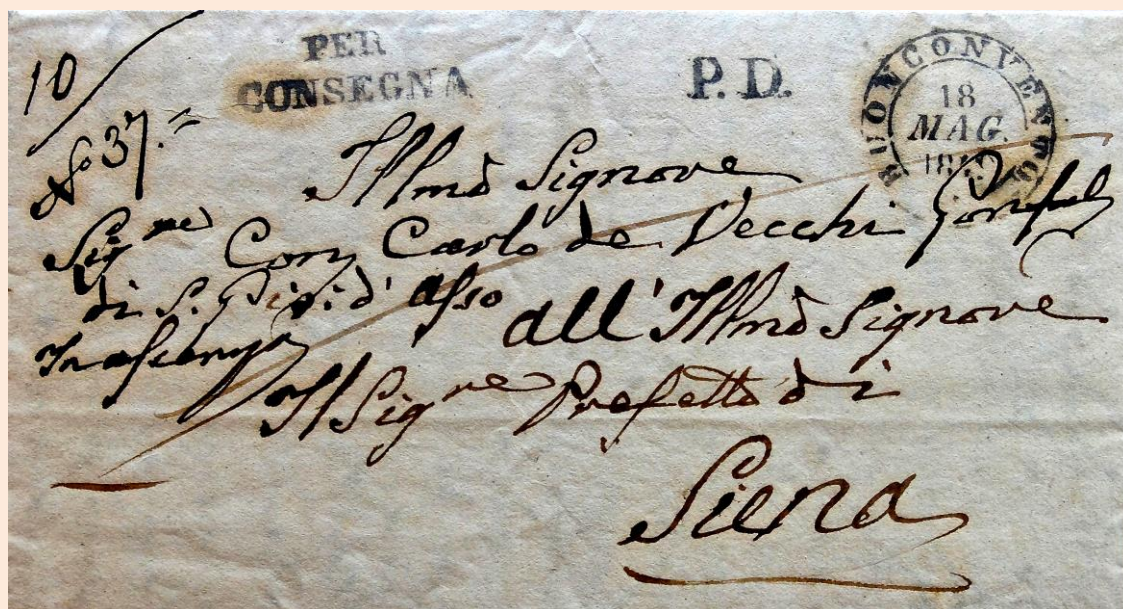 10
PER
CONSEGNA
P. D.
BUONCONVENTO
18
MAG.
No 37.=
Illmo Signore
Sigre Con Carlo de Vecchi Gonfal
di S. Gio: d' Asso
all' Illmo Signore
In assenza
Il Sigre Prefetto di
Siena